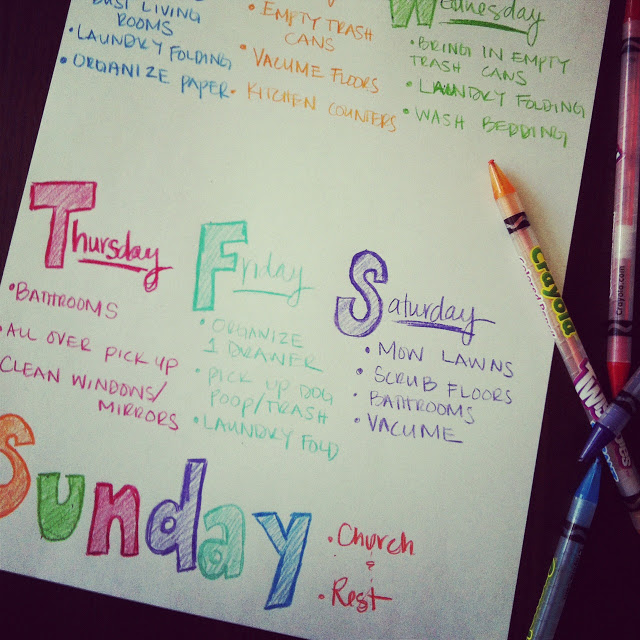 DUST LIVING
ROOMS
• LAUNDRY FOLDING
• ORGANIZE PAPER
• EMPTY TRASH
CANS
• VACUME FLOORS
• KITCHEN COUNTERS
Wednesday
• BRING IN EMPTY
TRASH CANS
• LAUNDRY FOLDING
• WASH BEDDING
Thursday
• BATHROOMS
• ALL OVER PICK UP
CLEAN WINDOWS/
MIRRORS
Friday
• ORGANIZE
1 DRAWER
• PICK UP DOG
POOP/TRASH
• LAUNDRY FOLD
Saturday
• MOW LAWNS
• SCRUB FLOORS
• BATHROOMS
• VACUME
Sunday
• Church
&
• Rest
Crayola
Crayola